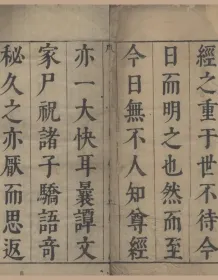 經之重于世不待今
日而明之也然而至
今日無不人知尊經
亦一大快耳曩譚文
家尸祝諸子驕語奇
秘久之亦厭而思返